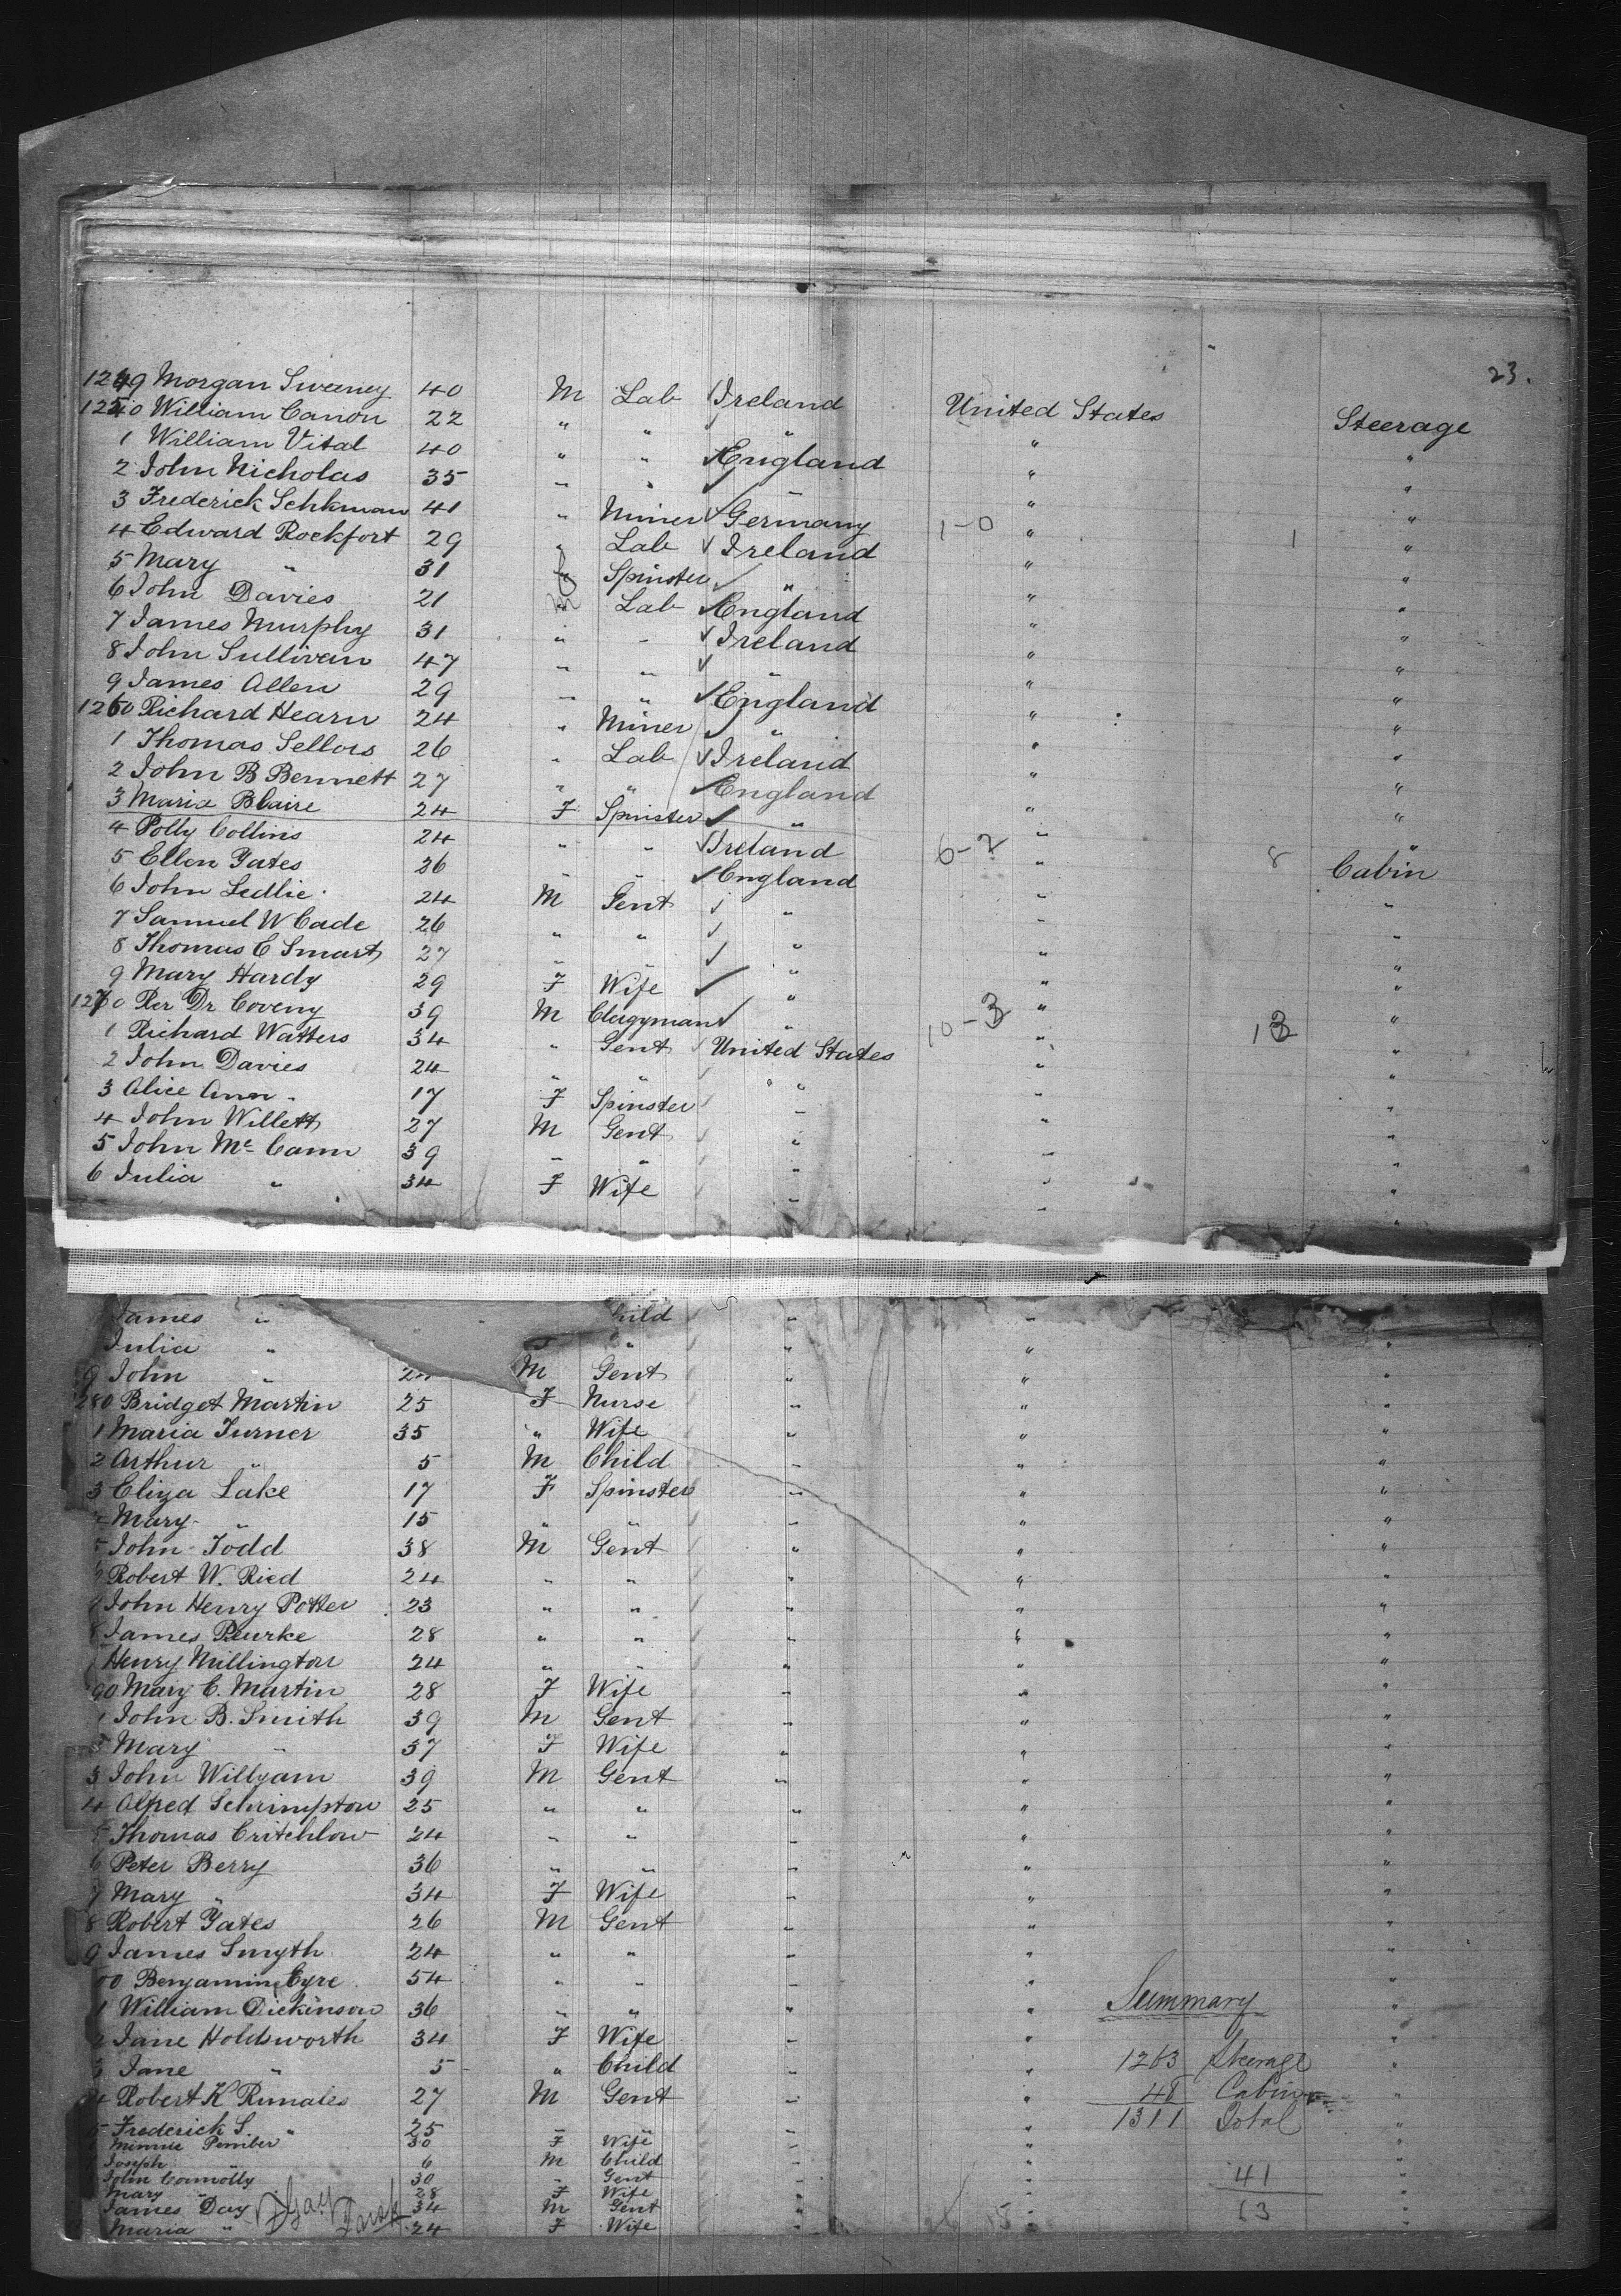 23.
1249 Morgan Sweeney 40 M Lab Ireland United States Steerage
1250 William Canon 22 " " " " "
1 William Vital 40 " " England " "
2 John Nicholas 35 " " " " "
3 Frederick Schkman 41 " Miner Germany 1-0 " 1 "
4 Edward Rockfort 29 " Lab Ireland " "
5 Mary " 31 f Spinster " " "
6 John Davies 21 M Lab England " "
7 James Murphy 31 " " Ireland " "
8 John Sullivan 47 " " " " "
9 James Allen 29 " " England " "
1260 Richard Hearn 24 " Miner " " "
1 Thomas Sellors 26 " Lab Ireland " "
2 John B Bennett 27 " " England " "
3 Maria Blaire 24 F Spinster " " "
4 Polly Collins 24 " " Ireland 6-2 " 8 Cabin
5 Ellen Yates 26 " " England " "
6 John Ledlie 24 M Gent " " "
7 Samuel W Cade 26 " " " " "
8 Thomas E Smart 27 " " " " "
9 Mary Hardy 29 F Wife " " "
1270 Rer Dr Coveny 39 M Clergyman " 10-3 " 13 "
1 Richard Watters 34 " Gent United States " "
2 John Davies 24 " " " " "
3 Alice Ann 17 F Spinster " " "
4 John Willett 27 M Gent " " "
5 John Mc Cann 39 " " " " "
6 Julia " 34 F Wife " " "
James " hild " "
Julia " F " " " "
9 John " M Gent " " "
280 Bridget Martin 25 F Nurse " " "
1 Maria Turner 35 " Wife " " "
2 Arthur " 5 M Child " " "
3 Eliza Lake 17 F Spinster " " "
Mary " 15 " " " " "
5 John Todd 38 M Gent " " "
Robert W. Ried 24 " " " " "
John Henry Potter 23 " " " " "
8 James Peurke 28 " " " " "
Henry Millington 24 " " " " "
90 Mary C. Martin 28 F Wife " " "
1 John B. Smith 39 M Gent " " "
Mary " 37 F Wife " " "
3 John Willyam 39 M Gent " " "
4 Alfred Schrimpton 25 " " " " "
5 Thomas Critchlow 24 " " " " "
6 Peter Berry 36 " " " " "
7 Mary " 34 F Wife " " "
8 Robert Yates 26 M Gent " " "
9 James Smyth 24 " " " " "
00 Benjamin Eyre 54 " " " " "
1 William Dickinson 36 " " " " Summary "
2 Jane Holdsworth 34 F Wife " " "
3 Jane " 5 " Child " " 1263 Steerage "
4 Robert K Rimales 27 M Gent " " 48 Cabin "
5 Frederick S. " 25 " " " " 1311 Total "
Minnie Pember 30 F Wife " " "
Joseph " 6 M Child " " "
John Connolly 30 " Gent " " 41 "
Mary " 28 F Wife " " "
James Day 34 M Gent " " 63 "
Maria " 24 F Wife " 15 " "